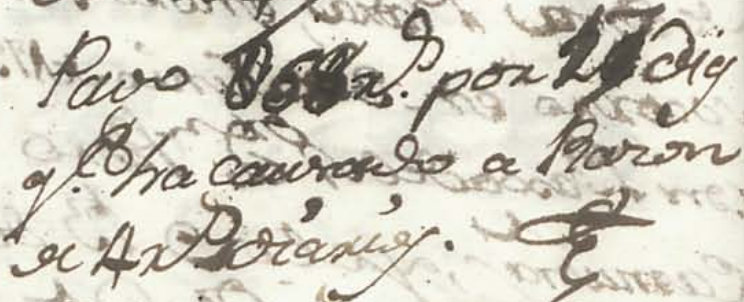 Pago 68 r.s por 17 dias
q.e ha causado a Razon
de 4 r.s diarios.